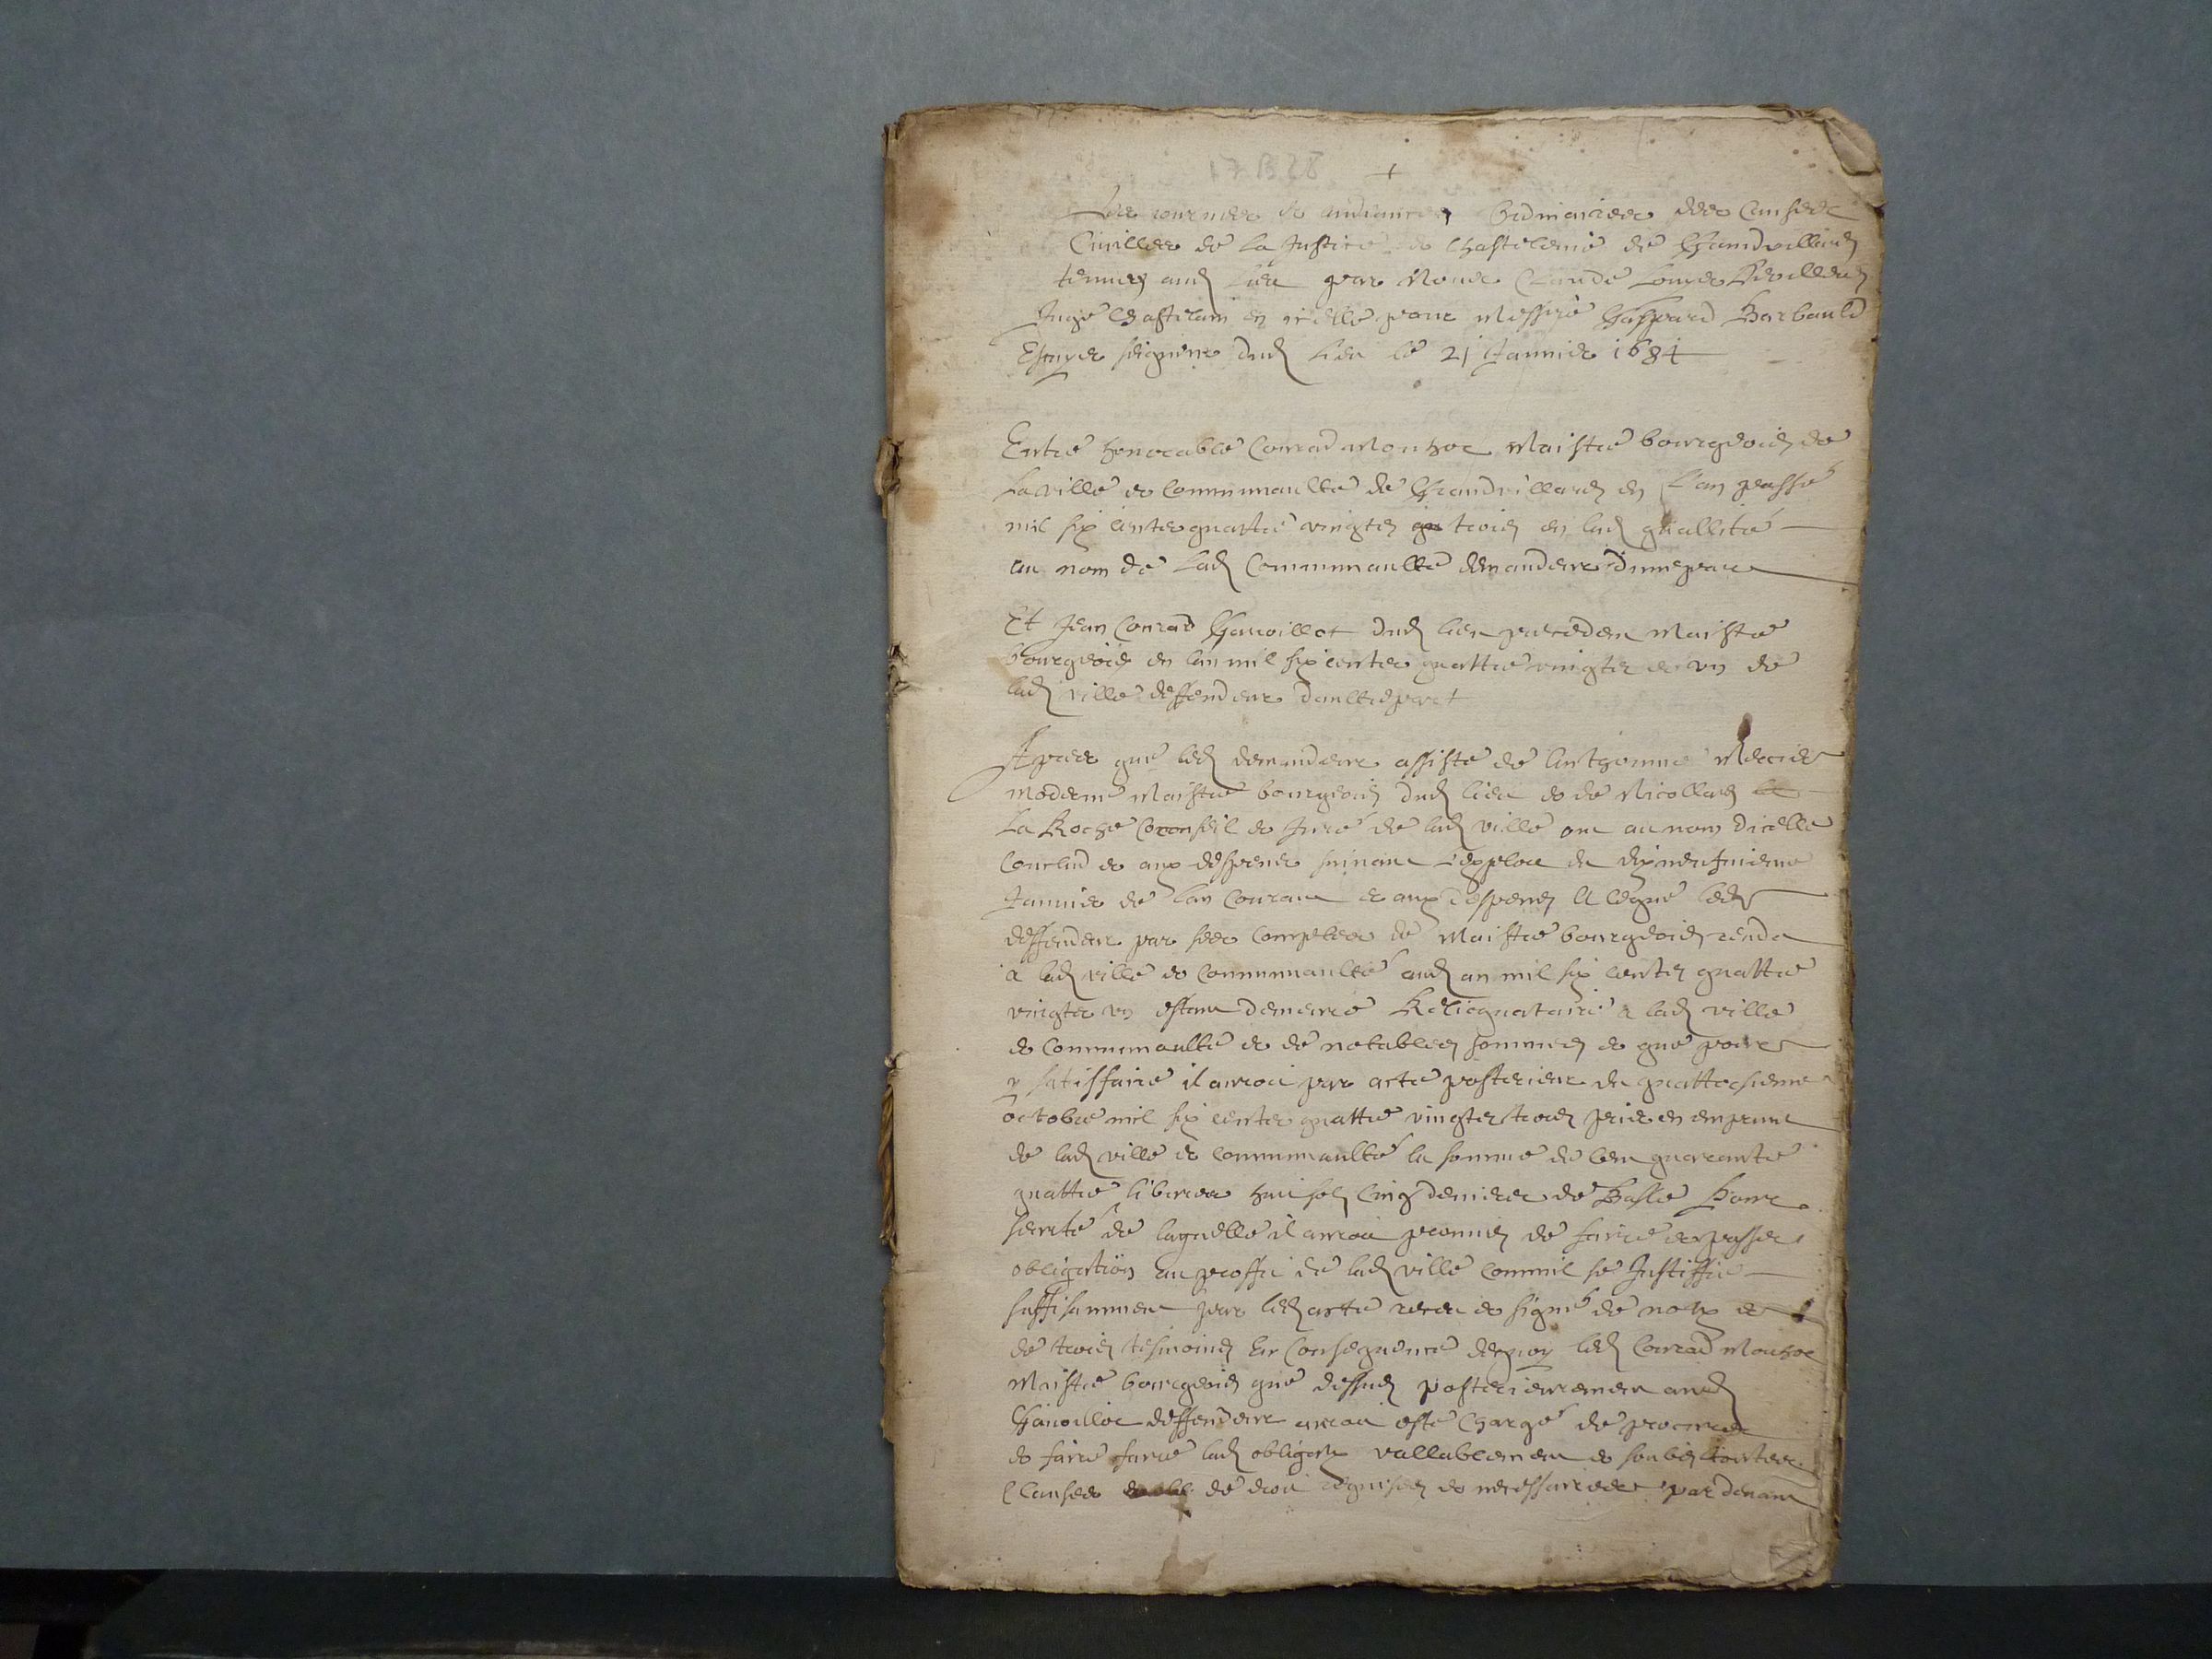 17 B 28
+
Les journées et audiances ordinaires des causes
Civilles de la Justice et Chastelenie de Grandvillars
tenues aud lieu par Nous Claude Louys
Juge Chastelain en icelle pour Messire Gaspard Barbauld
Escuyer seigneur dud lieu le 21 Janvier 1684
Entre honorable Conrad Monhot Maistre bourgeois de
La ville et Communaulté de Grandvillars en l'an passé
mil six centz quattre vingtz trois en lad quallité
au nom de lad Communaulté demandeur d'une part
Et Jean Conrad Garoillot dud lieu precedent Maistre
bourgeois en lan mil six centz quattre vingtz et un de
lad ville deffendeur d'aultrepart
Apres que led demandeur assisté de Anthoinne Mercier
moderne Maistre bourgeois dud lieu et de Nicollas
La Roche Conseil et Juré de lad ville ont au nom dicelle
Conclud et aux despens suivant l'exploit du dixneufvieme
Janvier de lan Courant et aux despens Allegué led
deffendeur par ses Comptes de Maistre bourgeois rendu
a lad ville et Communaulté aud an mil six centz quattre
vingtz un estant demeuré Relicquataire a lad ville
et Communaulté de notables sommes et que pour
y satisfaire il auroit par acte posterieur du quattorsieme
octobre mil six centz quattre vingtz trois pris en emprunt
de lad ville et Communaulté la somme de Cent quarante
quattre libvres huit solz Cinq deniers de Basle pour
seurté de laquelle il auroit promis de faire et passer
obligation au proffit de lad ville comm'il se Justiffie
suffisamment par led acte receu et signé de nous et
de trois tesmoins En Consequence dequoy led Conrad Monhot
Maistre bourgeois que dessus posterieurement aud
Garoillot deffendeur auroit esté Chargé de procurer
et faire faire lad obligaon vallablement et soubz touttes
Clauses de droit requises et necessaires par devant